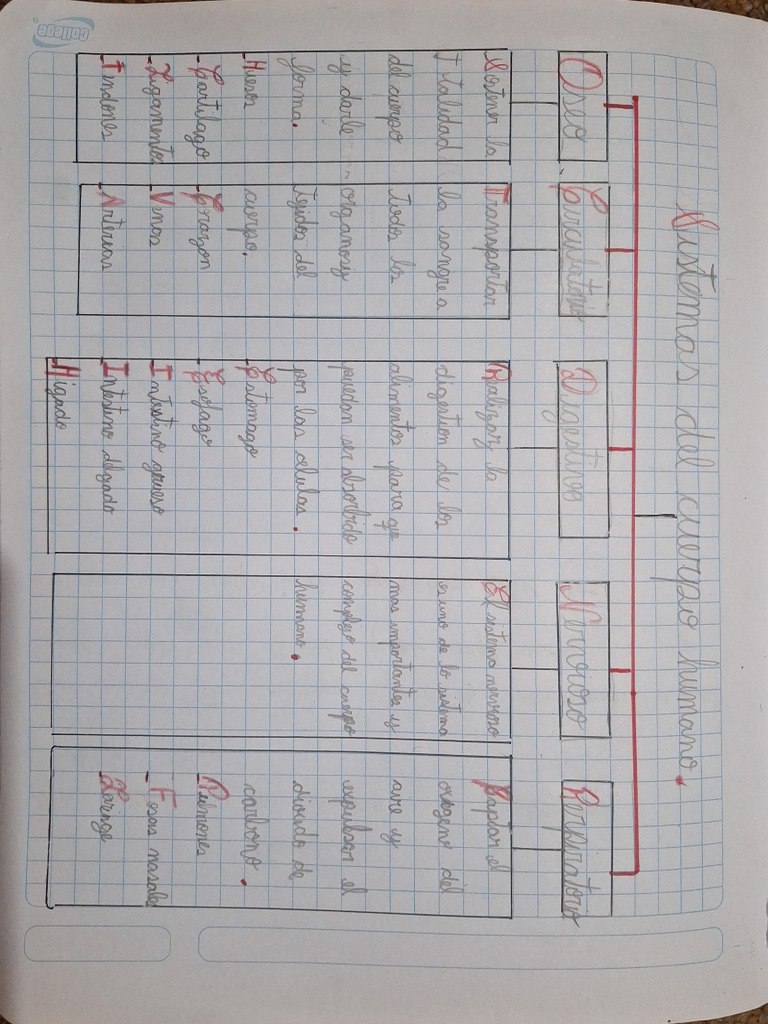 college
Sistemas del cuerpo humano.
Oseo
Sostener la
totalidad
del cuerpo
y darle
forma.
-Huesos
-Cartilago
-Ligamentos
-Tindones
Circulatorio
Transportar
la sangre a
todos los
organos y
tejidos del
cuerpo.
-Corazon
-Venas
-Arterias
Digestivo
Realizar la
digestion de los
alimentos para q
puedan ser absorbido
por las celulas.
-Estomago
-Esofago
-Intestino grueso
-Intestino delgado
-Higado
Nervioso
El sistema nervioso
es uno de lo sistema
mas importantes y
complejo del cuerpo
humano.
Respiratorio
Captar el
oxogeno del
aire y
expulson el
dioxido de
carbono.
-Pulmones
-Fosas nasales
-Laringe